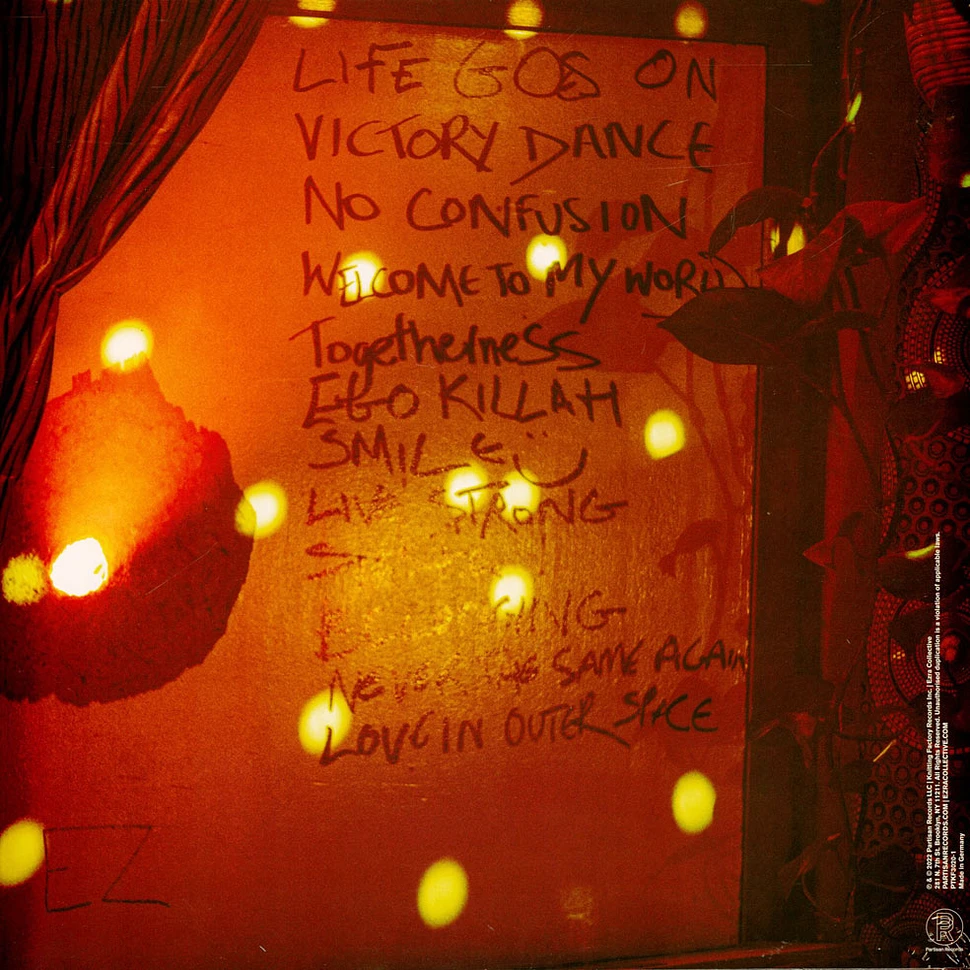 LIFE GOES ON
VICTORY DANCE
NO CONFUSION
WELCOME TO MY WORLD
Togetherness
EGO KILLAH
SMILE
LIVE STRONG
S
NEVER THE SAME AGAIN
LOVE IN OUTER SPACE
EZ
℗ & © 2022 Partisan Records LLC | Knitting Factory Records Inc. | Ezra Collective
281 N. 7th St. Brooklyn, NY 11211. All Rights Reserved. Unauthorised duplication is a violation of applicable laws.
PARTISANRECORDS.COM | EZRACOLLECTIVE.COM
PTKF3020-1
Made in Germany
Partisan Records